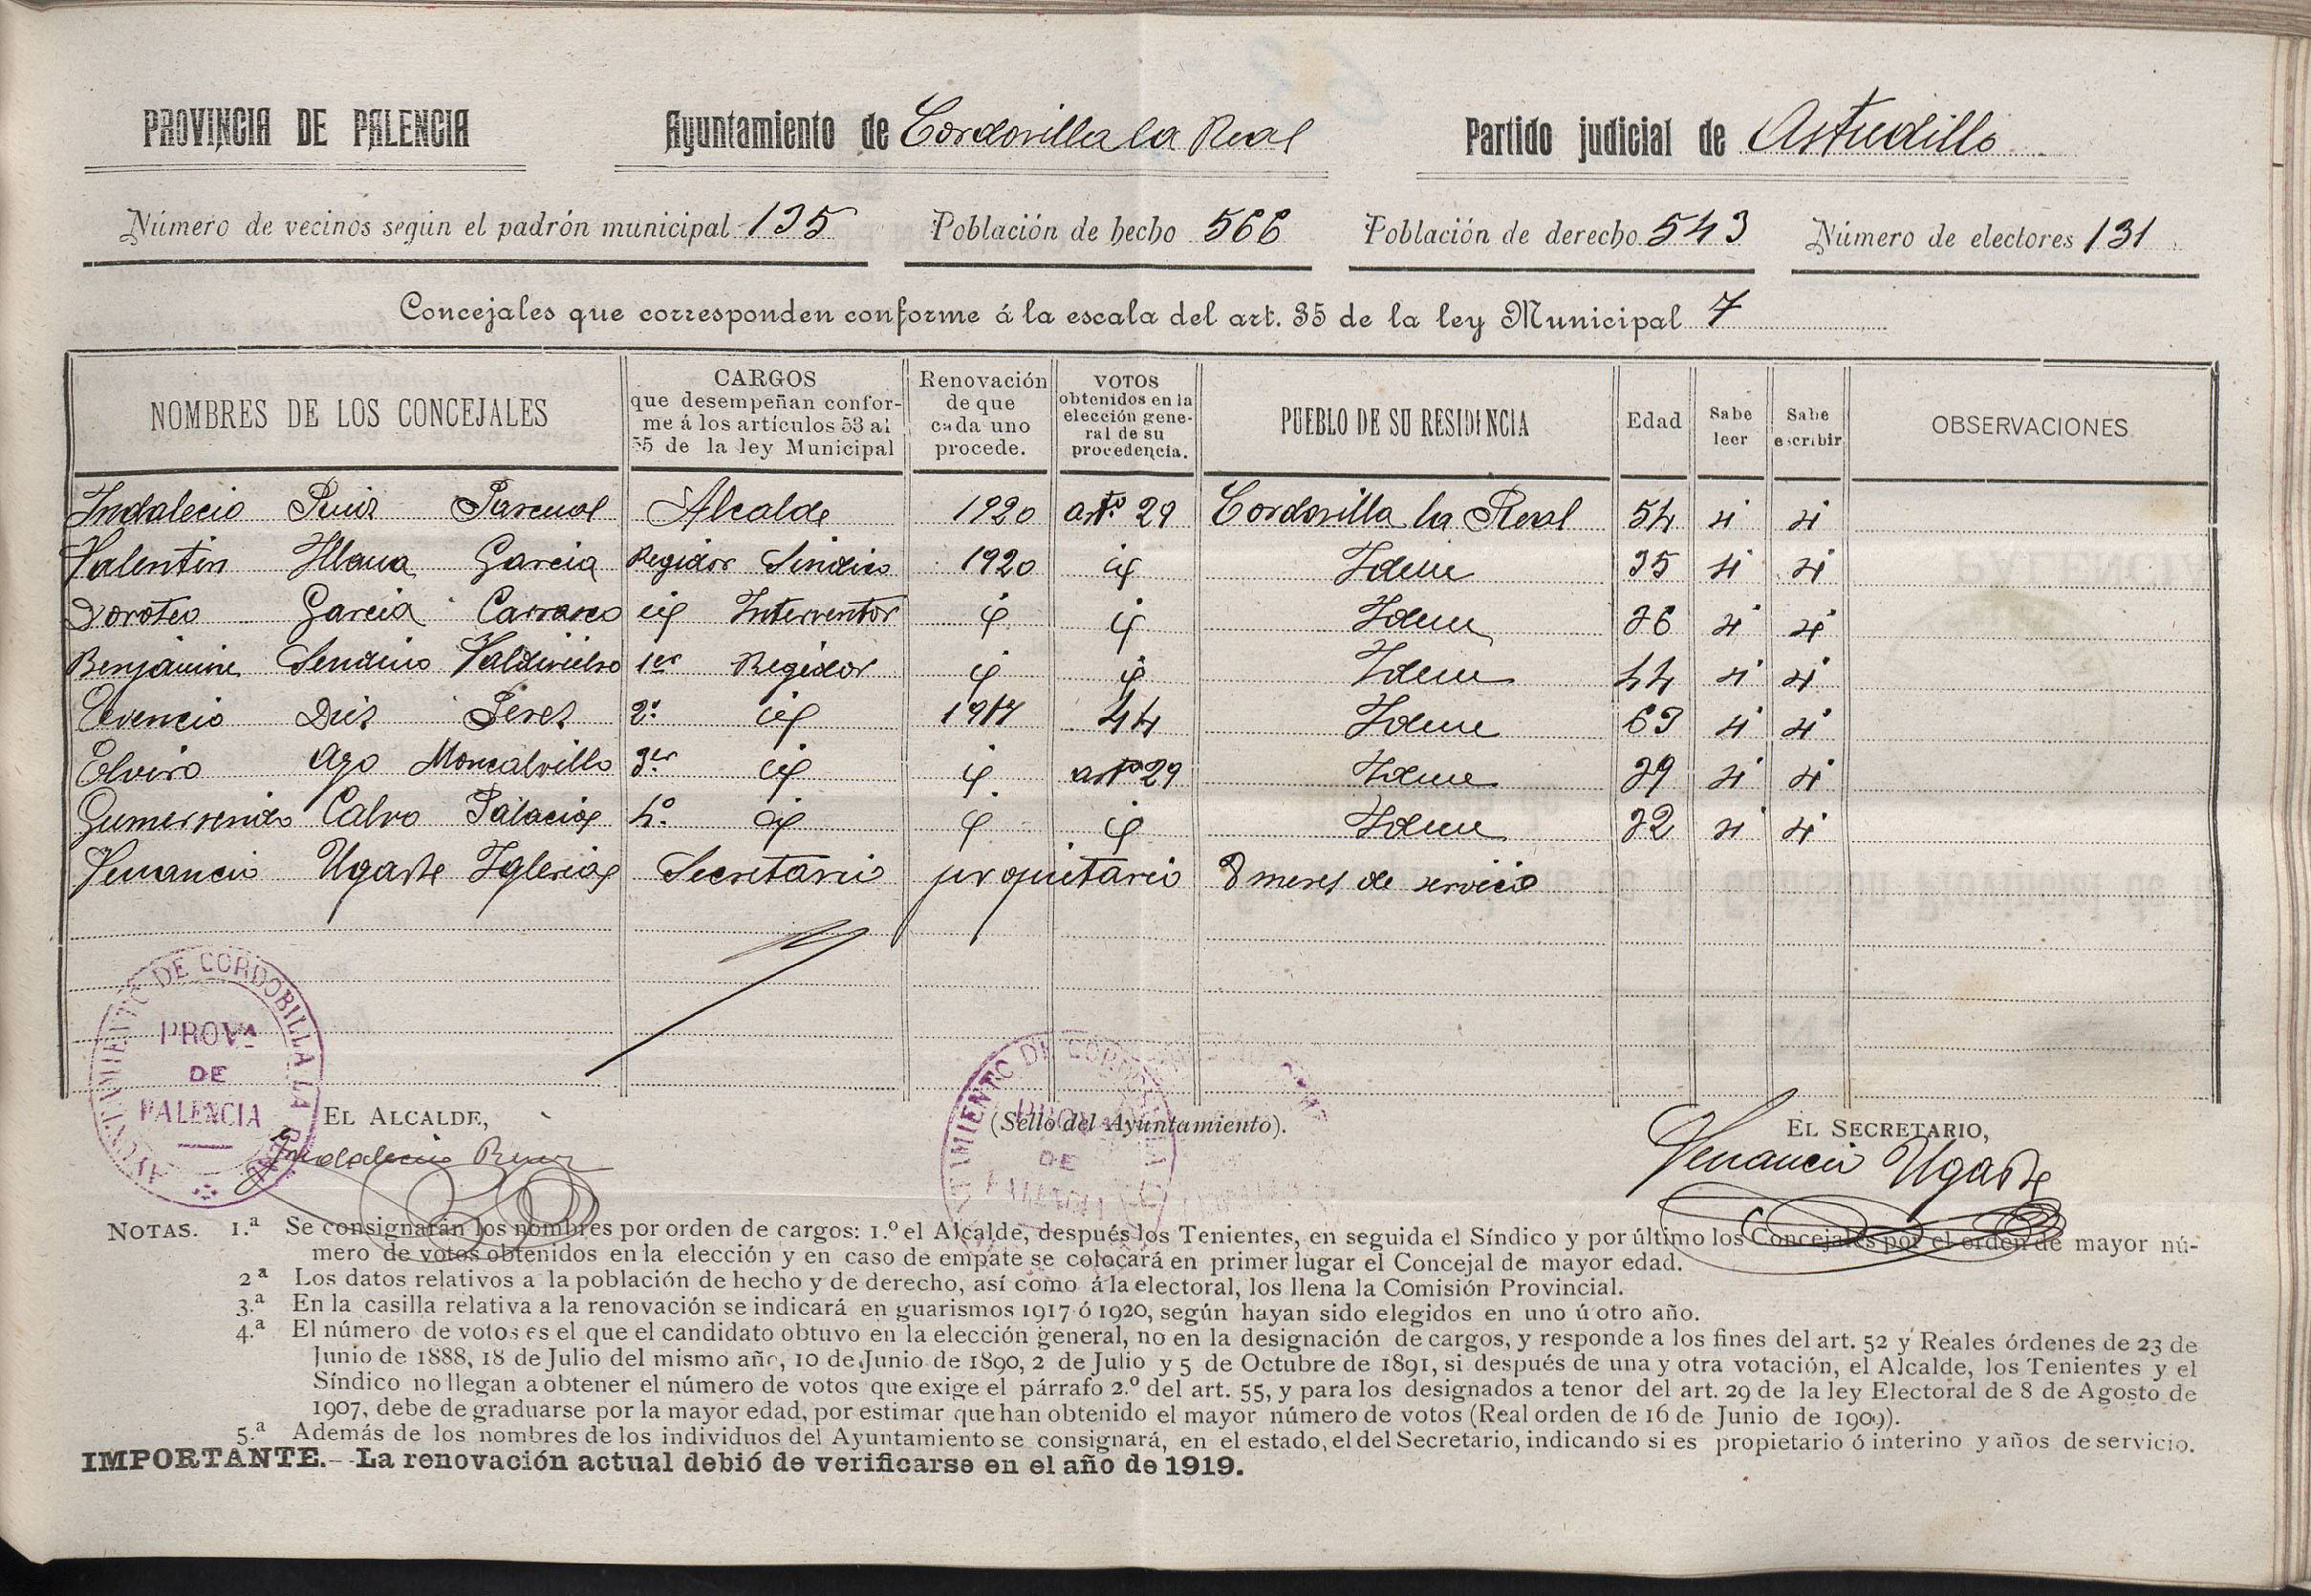 PROVINCIA DE PALENCIA Ayuntamiento de Cordovilla la Real Partido judicial de Astudillo
Número de vecinos según el padrón municipal 135 Población de hecho 566 Población de derecho 543 Número de electores 131
Concejales que corresponden conforme á la escala del art. 35 de la ley Municipal 7
NOMBRES DE LOS CONCEJALES
CARGOS
que desempeñan confor-
me á los artículos 53 al
55 de la ley Municipal
Renovación
de que
cada uno
procede.
VOTOS
obtenidos en la
elección gene-
ral de su
procedencia.
PUEBLO DE SU RESIDENCIA
Edad
Sabe
leer
Sabe
escribir
OBSERVACIONES
Indalecio Ruiz Pascual Alcalde 1920 artº 29 Cordovilla la Real 54 si si
Valentin Illana Garcia Regidor Sindico 1920 id Idem 35 si si
Doroteo Garcia Carrasco id Interventor id id Idem 36 si si
Benjamin Sendino Valdivielso 1er Regidor id id Idem 44 si si
Evencio Diez Perez 2º id 1917 44 Idem 63 si si
Elviro Ayo Moncalvillo 3er id id artº 29 Idem 39 si si
Gumersindo Calvo Palacios 4º id id id Idem 32 si si
Venancio Ugarte Iglesias Secretario propietario 8 meses de servicio
AYUNTAMIENTO DE CORDOBILLA LA REAL
PROVª
DE
PALENCIA
EL ALCALDE,
Indalecio Ruiz
(Sello del Ayuntamiento).
EL SECRETARIO,
Venancio Ugarte
NOTAS. 1.ª Se consignarán los nombres por orden de cargos: 1.º el Alcalde, después los Tenientes, en seguida el Síndico y por último los Concejales por el orden de mayor nú-
mero de votos obtenidos en la elección y en caso de empate se colocará en primer lugar el Concejal de mayor edad.
2ª Los datos relativos a la población de hecho y de derecho, así como á la electoral, los llena la Comisión Provincial.
3.ª En la casilla relativa a la renovación se indicará en guarismos 1917 ó 1920, según hayan sido elegidos en uno ú otro año.
4.ª El número de votos es el que el candidato obtuvo en la elección general, no en la designación de cargos, y responde a los fines del art. 52 y Reales órdenes de 23 de
Junio de 1888, 18 de Julio del mismo año, 10 de Junio de 1890, 2 de Julio y 5 de Octubre de 1891, si después de una y otra votación, el Alcalde, los Tenientes y el
Síndico no llegan a obtener el número de votos que exige el párrafo 2.º del art. 55, y para los designados a tenor del art. 29 de la ley Electoral de 8 de Agosto de
1907, debe de graduarse por la mayor edad, por estimar que han obtenido el mayor número de votos (Real orden de 16 de Junio de 1909).
5.ª Además de los nombres de los individuos del Ayuntamiento se consignará, en el estado, el del Secretario, indicando si es propietario ó interino y años de servicio.
IMPORTANTE.--La renovación actual debió de verificarse en el año de 1919.